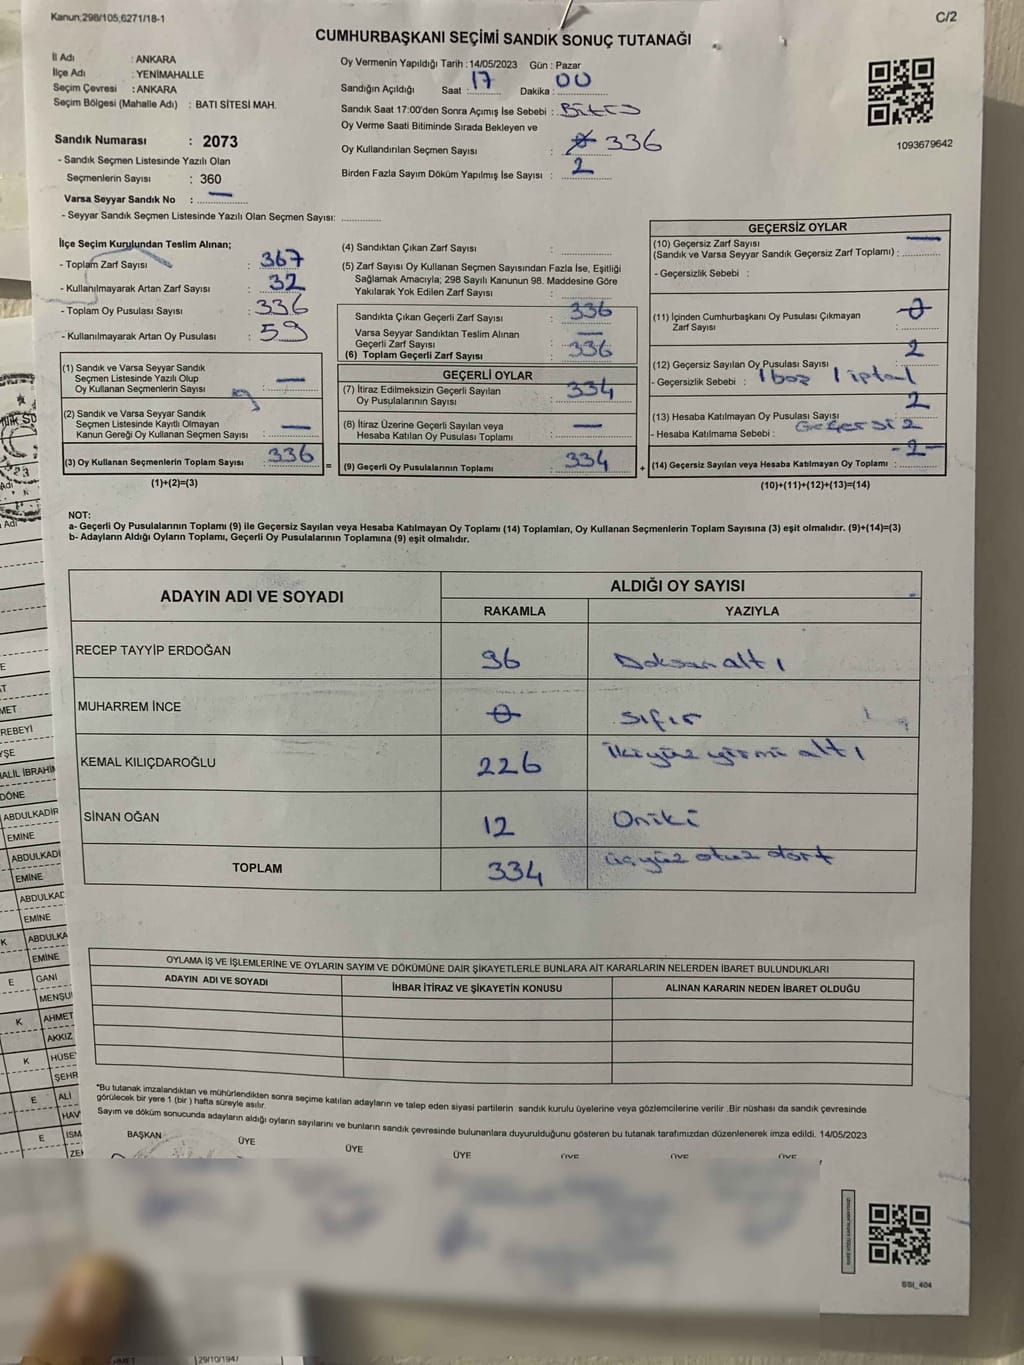 Kanun;298/105,6271/18-1
C/2
CUMHURBAŞKANI SEÇİMİ SANDIK SONUÇ TUTANAĞI
İl Adı : ANKARA
İlçe Adı : YENİMAHALLE
Seçim Çevresi : ANKARA
Seçim Bölgesi (Mahalle Adı) : BATI SİTESİ MAH.
Sandık Numarası : 2073
- Sandık Seçmen Listesinde Yazılı Olan
Seçmenlerin Sayısı : 360
Varsa Seyyar Sandık No : —
- Seyyar Sandık Seçmen Listesinde Yazılı Olan Seçmen Sayısı: ............
Oy Vermenin Yapıldığı Tarih : 14/05/2023 Gün : Pazar
Sandığın Açıldığı Saat : 17 Dakika : 00
Sandık Saat 17:00'den Sonra Açımış İse Sebebi :
Oy Verme Saati Bitiminde Sırada Bekleyen ve
Oy Kullandırılan Seçmen Sayısı : 336
Birden Fazla Sayım Döküm Yapılmış İse Sayısı : 2
1093679642
İlçe Seçim Kurulundan Teslim Alınan;
- Toplam Zarf Sayısı : 367
- Kullanılmayarak Artan Zarf Sayısı : 32
- Toplam Oy Pusulası Sayısı : 336
- Kullanılmayarak Artan Oy Pusulası : 59
(1) Sandık ve Varsa Seyyar Sandık
Seçmen Listesinde Yazılı Olup
Oy Kullanan Seçmenlerin Sayısı : —
(2) Sandık ve Varsa Seyyar Sandık
Seçmen Listesinde Kayıtlı Olmayan
Kanun Gereği Oy Kullanan Seçmen Sayısı : —
(3) Oy Kullanan Seçmenlerin Toplam Sayısı 336
(1)+(2)=(3)
(4) Sandıktan Çıkan Zarf Sayısı :
(5) Zarf Sayısı Oy Kullanan Seçmen Sayısından Fazla İse, Eşitliği
Sağlamak Amacıyla; 298 Sayılı Kanunun 98. Maddesine Göre
Yakılarak Yok Edilen Zarf Sayısı :
Sandıkta Çıkan Geçerli Zarf Sayısı : 336
Varsa Seyyar Sandıktan Teslim Alınan
Geçerli Zarf Sayısı : —
(6) Toplam Geçerli Zarf Sayısı : 336
GEÇERLİ OYLAR
(7) İtiraz Edilmeksizin Geçerli Sayılan
Oy Pusulalarının Sayısı : 334
(8) İtiraz Üzerine Geçerli Sayılan veya
Hesaba Katılan Oy Pusulası Toplamı : —
= (9) Geçerli Oy Pusulalarının Toplamı : 334
GEÇERSİZ OYLAR
(10) Geçersiz Zarf Sayısı
(Sandık ve Varsa Seyyar Sandık Geçersiz Zarf Toplamı) : —
- Geçersizlik Sebebi :
(11) İçinden Cumhurbaşkanı Oy Pusulası Çıkmayan
Zarf Sayısı : 0
(12) Geçersiz Sayılan Oy Pusulası Sayısı : 2
- Geçersizlik Sebebi : 1 boş 1 iptal
(13) Hesaba Katılmayan Oy Pusulası Sayısı : 2
- Hesaba Katılmama Sebebi : Geçersiz
+ (14) Geçersiz Sayılan veya Hesaba Katılmayan Oy Toplamı : -2-
(10)+(11)+(12)+(13)=(14)
NOT:
a- Geçerli Oy Pusulalarının Toplamı (9) ile Geçersiz Sayılan veya Hesaba Katılmayan Oy Toplamı (14) Toplamları, Oy Kullanan Seçmenlerin Toplam Sayısına (3) eşit olmalıdır. (9)+(14)=(3)
b- Adayların Aldığı Oyların Toplamı, Geçerli Oy Pusulalarının Toplamına (9) eşit olmalıdır.
ADAYIN ADI VE SOYADI
ALDIĞI OY SAYISI
RAKAMLA YAZIYLA
RECEP TAYYİP ERDOĞAN 96 Doksan altı
MUHARREM İNCE 0 Sıfır
KEMAL KILIÇDAROĞLU 226 İkiyüz yirmi altı
SİNAN OĞAN 12 Oniki
TOPLAM 334 üçyüz otuz dört
OYLAMA İŞ VE İŞLEMLERİNE VE OYLARIN SAYIM VE DÖKÜMÜNE DAİR ŞİKAYETLERLE BUNLARA AİT KARARLARIN NELERDEN İBARET BULUNDUKLARI
ADAYIN ADI VE SOYADI İHBAR İTİRAZ VE ŞİKAYETİN KONUSU ALINAN KARARIN NEDEN İBARET OLDUĞU
*Bu tutanak imzalandıktan ve mühürlendikten sonra seçime katılan adayların ve talep eden siyasi partilerin sandık kurulu üyelerine veya gözlemcilerine verilir. Bir nüshası da sandık çevresinde
görülecek bir yere 1 (bir ) hafta süreyle asılır.
Sayım ve döküm sonucunda adayların aldığı oyların sayılarını ve bunların sandık çevresinde bulunanlara duyurulduğunu gösteren bu tutanak tarafımızdan düzenlenerek imza edildi. 14/05/2023
BAŞKAN ÜYE ÜYE ÜYE ÜYE ÜYE ÜYE
SSI_404
REBEYİ
DÖNE
ABDULKADİR
EMİNE
ABDULKADİ
EMİNE
ABDULKAD
EMİNE
K ABDULKA
EMİNE
E GANİ
MENSU
K AHMET
AKKIZ
K HÜSE
ŞEHR
E ALİ
HAV
E İSM
29/10/1947